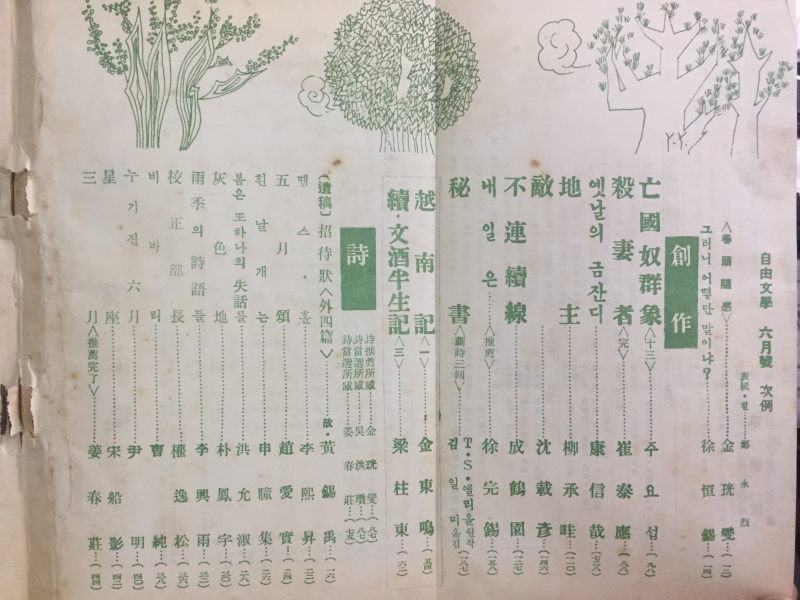 自由文學 六月號 次例
表紙·컽 鄭永烈
<卷頭隨感> 金珖燮 (一二)
그러니 어떻단 말이냐? 徐恒錫 (一四)
創作
亡國奴群象<十三> 주요섭 (九八)
殺妻者<完> 崔泰應 (八八)
옛날의 금잔디 康信哉 (七六)
地主 柳承畦 (一一〇)
敵 沈載彦 (一四六)
不連續線 成鶴園 (一二七)
내일은<推薦> 徐完錫 (一五八)
秘書<劇詩三回> T·S·엘리을原作 김일미 옮김 (一八七)
越南記<一> 金東鳴 (五四)
續·文酒半生記<三> 梁柱東 (六二)
詩
詩推薦所感 金珖燮 (八七)
詩當選所感 吳洪瓚 (八七)
詩當選所感 姜春莊 (七五)
〔遺稿〕招待狀<外四篇> 故·黃錫禹 (一六)
땐스·홀 李熙昇 (二二)
五月頌 趙愛實 (二四)
흰날개는 申瞳集 (二六)
봄은 또하나의 失話를 洪允淑 (二八)
灰色地 朴鳳宇 (三〇)
雨季의 詩語들 李興雨 (三二)
校正部長 權逸松 (三六)
비바리 曺純 (三八)
누기진 六月 尹明 (四〇)
星座 宋船影 (四二)
三月<推薦完了> 姜春莊 (四四)
Y.Y.